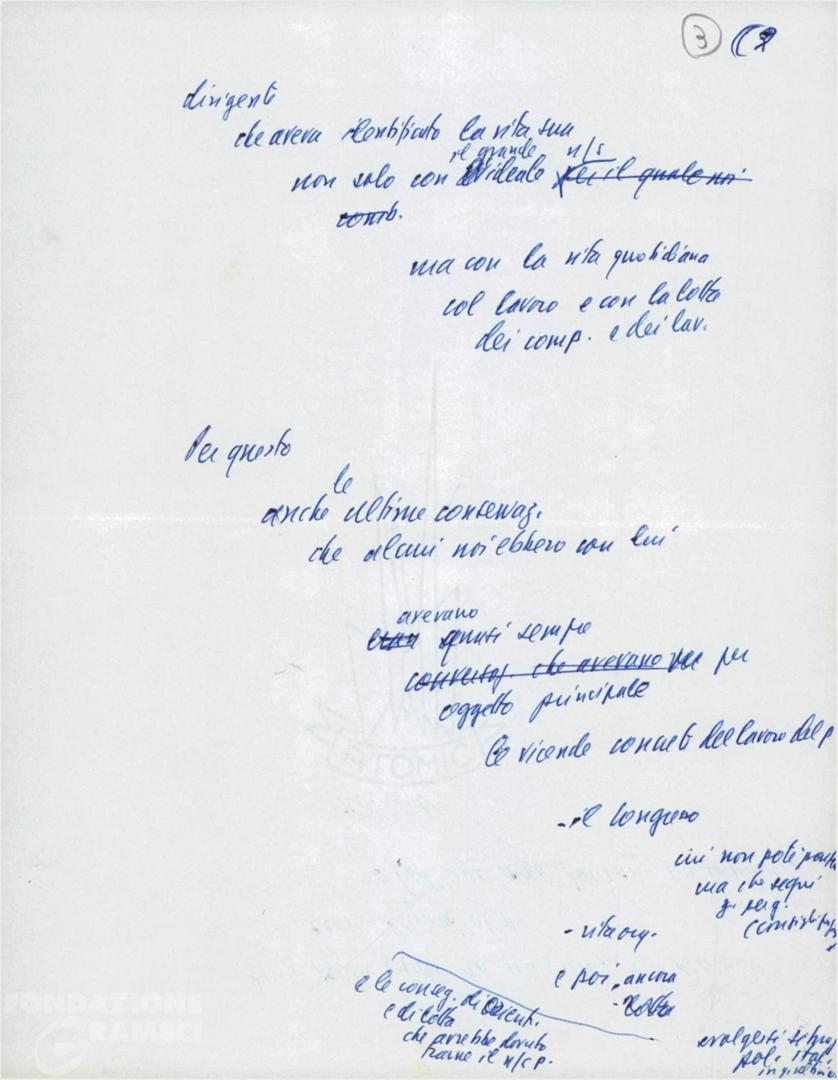 3
dirigenti
che aveva identificato la vita sua
il grande n/s
non solo con ideale per il quale noi
comb.
ma con la vita quotidiana
col lavoro e con la lotta
dei comp. e dei lav.
Per questo
le
anche ultime conversaz.
che alcuni noi ebbero con lui
avevano
quasi sempre
conversaz. che avevano per
oggetto principale
le vicende concrete del lavoro del p
- il Congresso
cui non poté
ma che seguì
(consigli
- vita org.
e poi, ancora
- lotta
e le conseg. di orient.
e di lotta
che avrebbe dovuto
trarne il n/s p.
svolgersi
pol. ital.
ATOMIC
FONDAZIONE
GRAMSCI